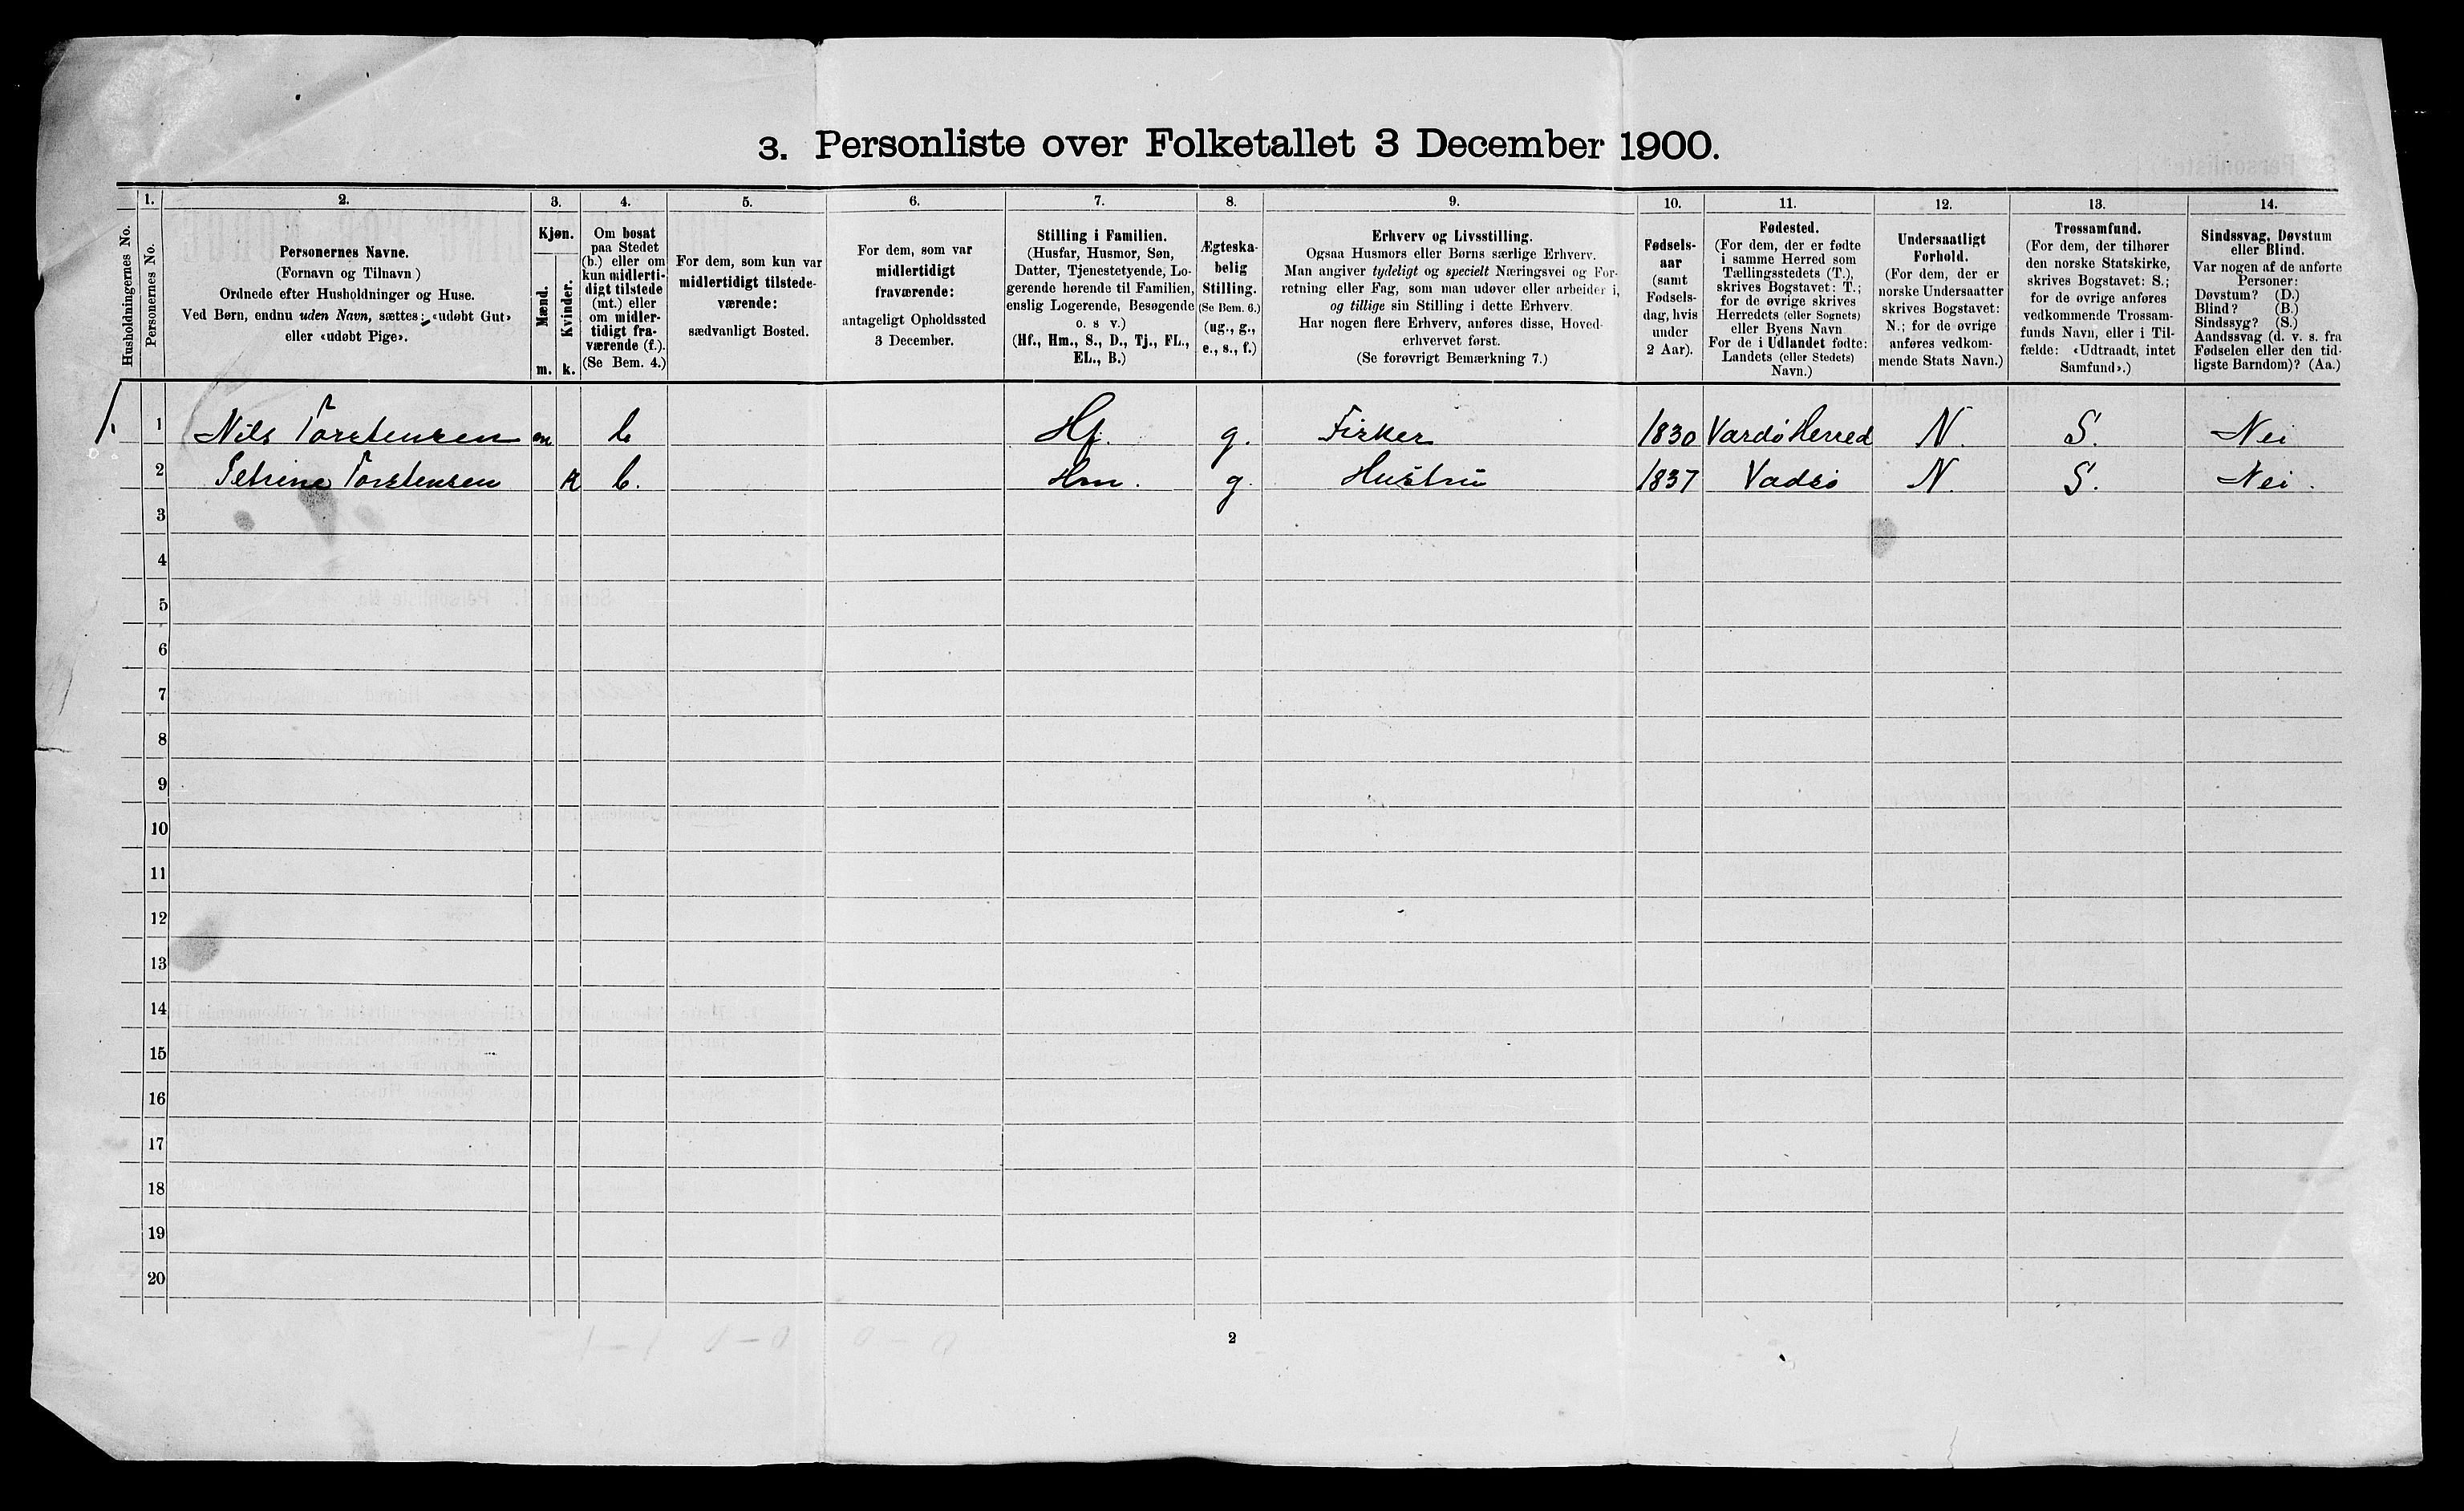 3. Personliste over Folketallet 3 December 1900.
Husholdningernes No.
1.
Personernes No.
2.
Personernes Navne.
(Fornavn og Tilnavn)
Ordnede efter Husholdninger og Huse.
Ved Børn, endnu uden Navn, sættes: «udøbt Gut»
eller «udøbt Pige».
3.
Kjøn.
Mænd.
m.
Kvinder.
k.
4.
Om bosat
paa Stedet
(b.) eller om
kun midlerti-
digt tilstede
(mt.) eller
om midler-
tidigt fra-
værende (f.).
(Se Bem. 4.)
5.
For dem, som kun var
midlertidigt tilstede-
værende:
sædvanligt Bosted.
6.
For dem, som var
midlertidigt
fraværende:
antageligt Opholdssted
3 December.
7.
Stilling i Familien.
(Husfar, Husmor, Søn,
Datter, Tjenestetyende, Lo-
gerende hørende til Familien,
enslig Logerende, Besøgende
o. s v.)
(Hf., Hm., S., D., Tj., FL.,
EL., B.)
8.
Ægteska-
belig
Stilling.
(Se Bem. 6.)
(ug., g.,
e., s., f.)
9.
Erhverv og Livsstilling.
Ogsaa Husmors eller Børns særlige Erhverv.
Man angiver tydeligt og specielt Næringsvei og For-
retning eller Fag, som man udøver eller arbeider i,
og tillige sin Stilling i dette Erhverv.
Har nogen flere Erhverv, anføres disse, Hoved-
erhvervet først.
(Se forøvrigt Bemærkning 7.)
10.
Fødsels-
aar
(samt
Fødsels-
dag, hvis
under
2 Aar).
11.
Fødested.
(For dem, der er fødte
i samme Herred som
Tællingsstedets (T.),
skrives Bogstavet: T.;
for de øvrige skrives
Herredets (eller Sognets)
eller Byens Navn
For de i Udlandet fødte:
Landets (eller Stedets)
Navn.)
12.
Undersaatligt
Forhold.
(For dem, der er
norske Undersaatter
skrives Bogstavet:
N.; for de øvrige
anføres vedkom-
mende Stats Navn.)
13.
Trossamfund.
(For dem, der tilhører
den norske Statskirke,
skrives Bogstavet: S.;
for de øvrige anføres
vedkommende Trossam-
funds Navn, eller i Til-
fælde: «Udtraadt, intet
Samfund».)
14.
Sindssvag, Døvstum
eller Blind.
Var nogen af de anførte
Personer:
Døvstum? (D.)
Blind? (B.)
Sindssyg? (S.)
Aandssvag (d. v. s. fra
Fødselen eller den tid-
ligste Barndom)? (Aa.)
1. 1 Nils Torstensen m b Hf. g. Fisker 1830 Vardö Herred N. S. Nei
2 Petrine Torstensen k b. Hm. g. Hustru 1837 Vadsö N. S. Nei.
3
4
5
6
7
8
9
10
11
12
13
14
15
16
17
18
19
20
2